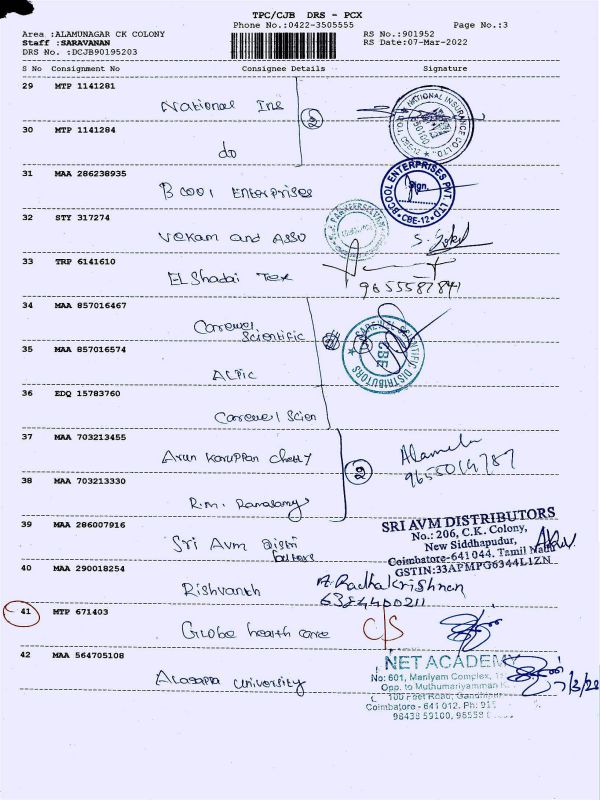 TPC/CJB DRS - PCX
Phone No.:0422-3505555 Page No.:3
Area :ALAMUNAGAR CK COLONY RS No.:901952
Staff :SARAVANAN RS Date:07-Mar-2022
DRS No. :DCJB90195203
S No Consignment No Consignee Details Signature
29 MTP 1141281
National Ins
30 MTP 1141284
do
31 MAA 286238935
BCOOL Enterprises
BCOOL ENTERPRISES PVT. LTD.
CBE-12
32 STY 317274
Vekam and Asso
33 TRP 6141610
El Shadai Tex
9655587841
34 MAA 857016467
Carewel Scientific
CAREWEL SCIENTIFIC DISTRIBUTORS
CBE
35 MAA 857016574
36 EDQ 15783760
Carewel Scien
37 MAA 703213455
Arun Karuppan Chetty
29
Alamelu
38 MAA 703213330
R.M. Ramasamy
39 MAA 286007916
Sri Avm Distri
butors
SRI AVM DISTRIBUTORS
No.: 206, C.K. Colony,
New Siddhapudur,
Coimbatore-641 044. Tamil Nadu
GSTIN:33APMPG6344L1ZN
40 MAA 290018254
Rishvanth
A. Radhakrishnan
6384400211
41 MTP 671403
Globe health care
C/S
42 MAA 564705108
Alagappa University
NET ACADEMY
No: 601, Maniyam Complex,
Opp. to Muthumariyamman
100 Feet Road,
Coimbatore - 641 012. Ph:
98438 59100,